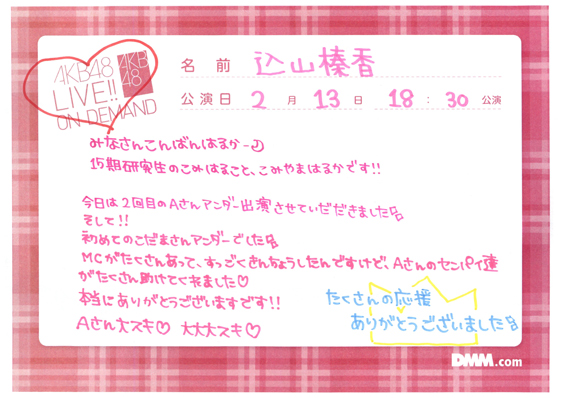 AKB48
LIVE!!
ON DEMAND
AKB
48
名 前 込山榛香
公演日 2 月 13 日 18 : 30 公演
みなさんこんばんはるかーつ
15期研究生のこみはること、こみやまはるかです!!
今日は2回目のAさんアンダー出演させていただきました
そして!!
初めてのこだまさんアンダーでした
MCがたくさんあって、すっごくきんちょうしたんですけど、Aさんのセンパイ達
がたくさん助けてくれました♡
本当にありがとうございますです!!
Aさん大スキ♡ 大大大スキ♡
たくさんの応援
ありがとうございました
DMM.com